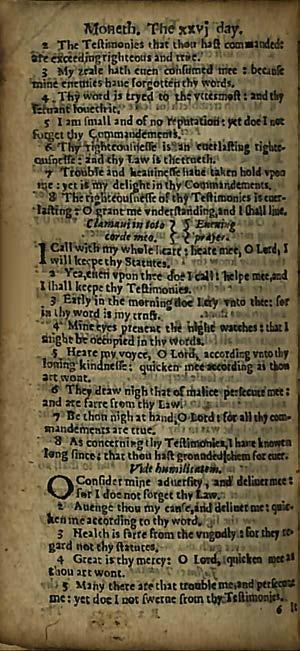 Moneth. The xxvj day.
2 The Testimonies that thou hast commanded:
are exceeding righteous and true.
3 My zeale hath euen consumed mee : because
mine enemies haue forgotten thy words.
4 Thy word is tryed to the vttermost : and thy
seruant loueth it.
5 I am small and of no reputation : yet doe I not
forget thy Commandements.
6 Thy righteousnesse is an euerlasting righte-
ousnesse : and thy Law is the trueth.
7 Trouble and heauinesse haue taken hold vpon
me : yet is my delight in thy Commandements.
8 The righteousnesse of thy Testimonies is euer-
lasting : O grant me vnderstanding, and I shall liue.
Clamaui in toto } { Euening
corde meo. } { prayer.
I Call with my whole heart : heare mee, O Lord, I
will keepe thy Statutes.
2 Yea, euen vpon thee doe I call : helpe mee, and
I shall keepe thy Testimonies.
3 Early in the morning doe I cry vnto thee : for
in thy word is my trust.
4 Mine eyes preuent the night watches : that I
might be occupied in thy Words.
5 Heare my voyce, O Lord, according vnto thy
louing kindnesse : quicken mee according as thou
art wont.
6 They draw nigh that of malice persecute mee :
and are farre from thy Law.
7 Be thou nigh at hand, O Lord : for all thy com-
mandements are true.
8 As concerning thy Testimonies, I haue knowen
long since : that thou hast grounded them for euer.
Vide humilitatem.
O Consider mine aduersity, and deliuer mee :
for I doe not forget thy Law.
2 Auenge thou my cause, and deliuer me : quic-
ken me according to thy word.
3 Health is farre from the vngodly : for they re-
gard not thy statutes.
4 Great is thy mercy : O Lord, quicken mee as
thou art wont.
5 Many there are that trouble me, and persecute
me : yet doe I not swerue from thy Testimonies.
6 It